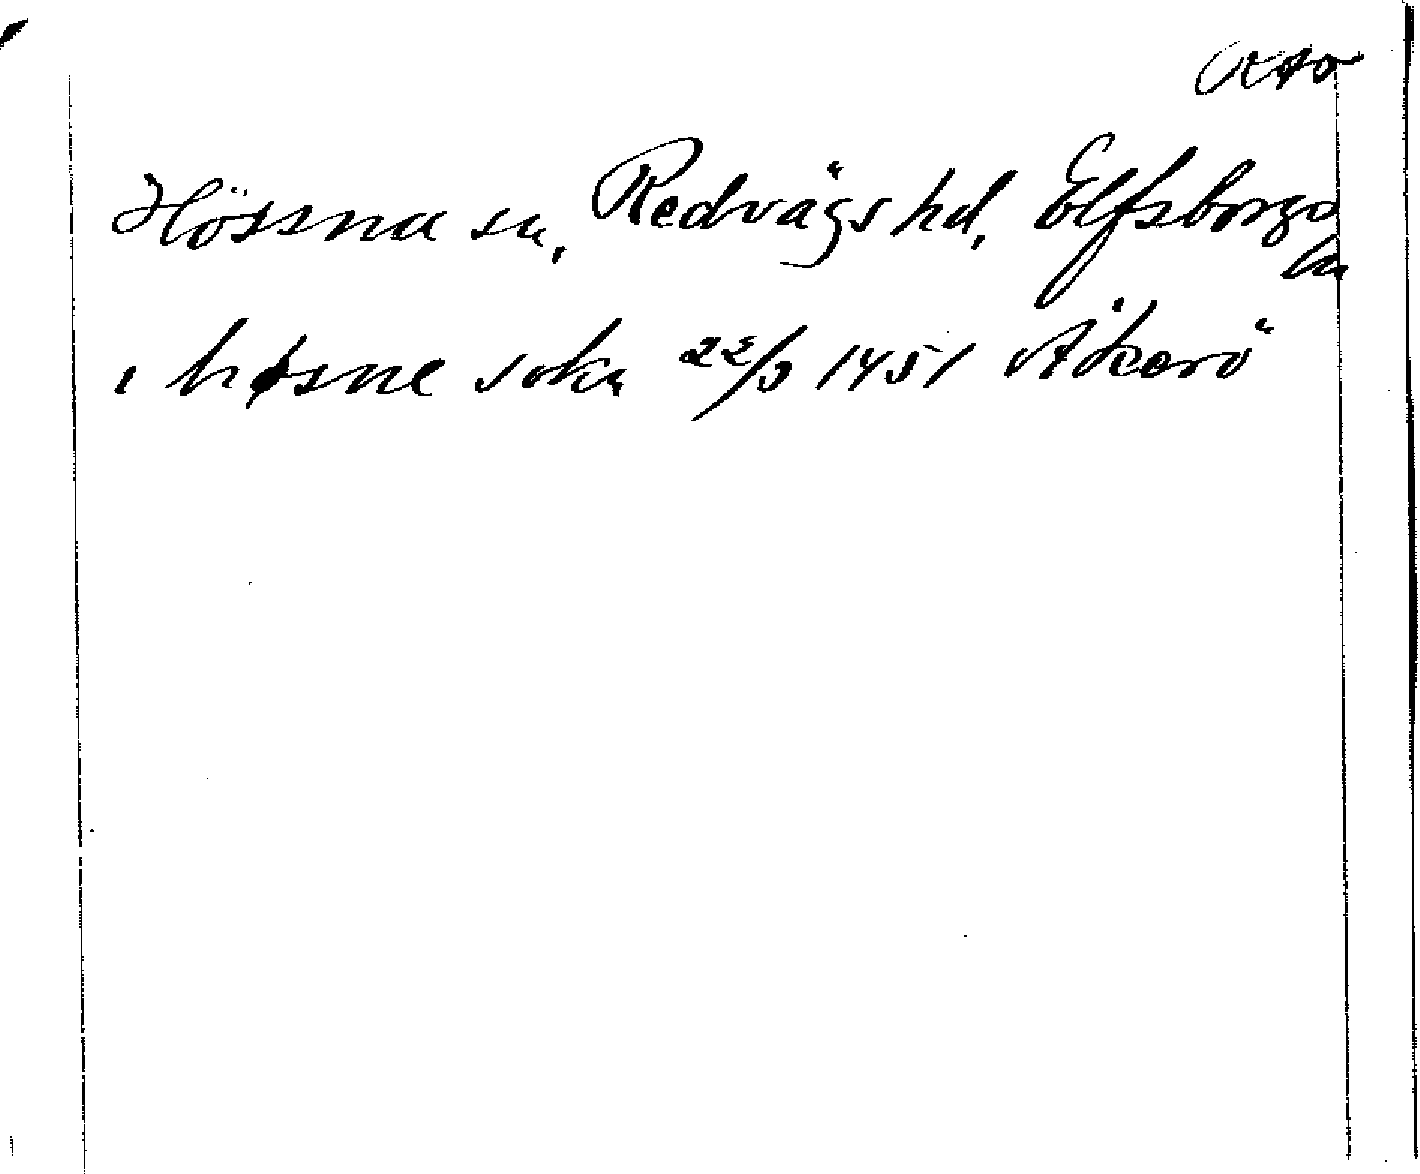 Hössna sn, Redvägs hd, Elfsborgs
ln
i høsne sokn 22/3 1451 Åkerö